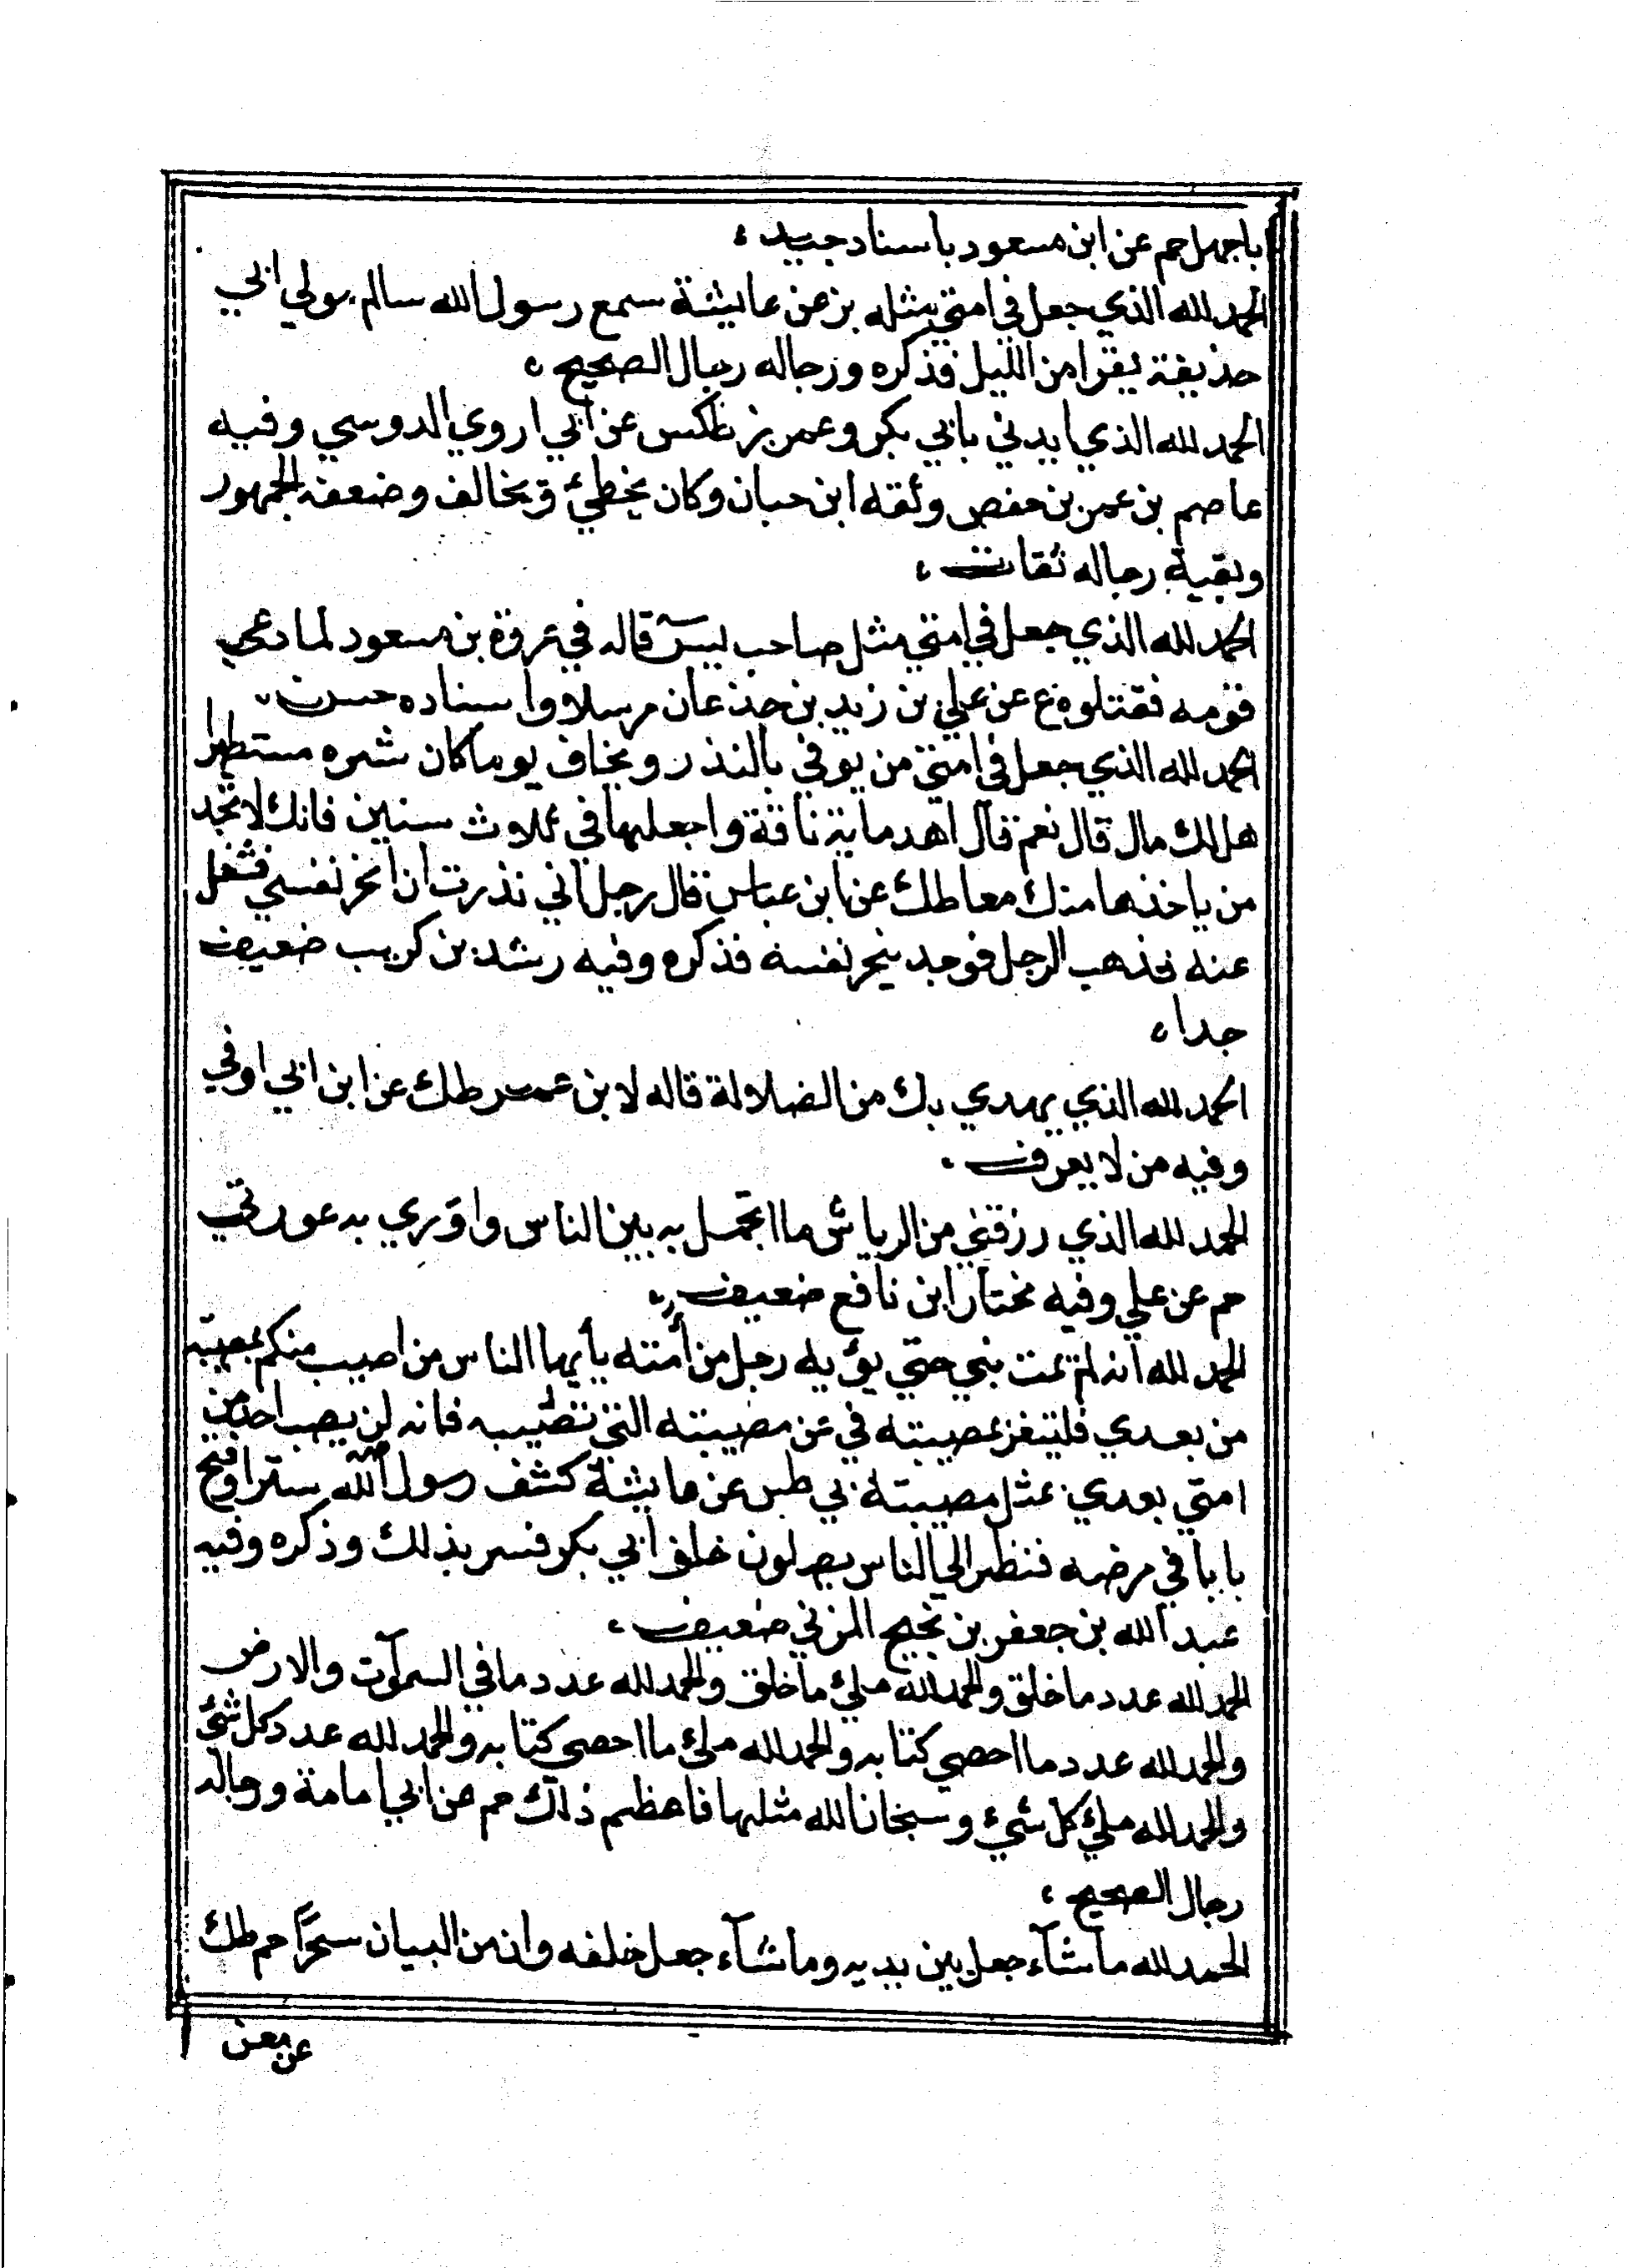 باجهل حم عن ابن مسعود باسناد جييد ،
الحمد لله الذي جعل في امتي مثله بز عن عايشة سمع رسول الله سالم مولي ابي
حذيفة يقرا من الليل فذكره ورجاله رجال الصحيح ،
الحمد لله الذي ايدني بابي بكر وعمر بز طكس عن ابي اروي الدوسي وفيه
عاصم بن عمر بن حفص وثقه ابن حبان وكان يخطئ ويخالف وضعفه الجمهور
وبقية رجاله ثقات ،
الحمد لله الذي جعل في امتي مثل صاحب ليس قاله في عروة بن مسعود لما دعي
قومه فقتلوه ع عن علي بن زيد بن جذعان مرسلا واسناده حسن ،
الحمد لله الذي جعل في امتي من يوفي بالنذر ويخاف يوما كان شره مستطيرا
هل لك مال قال نعم قال اهد ماية ناقة واجعلها في ثلاث سنين فانك لا تجد
من ياخذها منك معا طك عن ابن عباس قال رجل اني نذرت ان انحر نفسي فشغل
عنه فذهب الرجل فوجد ينحر نفسه فذكره وفيه رشد بن كريب ضعيف
جدا ،
الحمد لله الذي يهدي بك من الضلالة قاله لابن عمر طك عن ابن ابي اوفي
وفيه من لا يعرف ،
الحمد لله الذي رزقني من الرياش ما اتجمل به بين الناس واوري به عورتي
حم عن علي وفيه مختار ابن نافع ضعيف ،
الحمد لله انه لم يمت نبي حتي يؤيه رجل من أمته يأيها الناس من اصيب منكم بمصيبة
من بعدي فليتعز بمصيبته في عن مصيبته التي تصيبه فانه لن يصب احد من
امتي بعدي بمثل مصيبته بي طس عن عايشة كشف رسول الله سترا وفتح
بابا في مرضه فنظر الي الناس يصلون خلف ابي بكر فسر بذلك وذكره وفيه
عبد الله بن جعفر بن نجيح المزني ضعيف ،
الحمد لله عدد ما خلق والحمد لله ملئ ما خلق والحمد لله عدد ما في السموات والارض
والحمد لله عدد ما احصي كتابه والحمد لله ملئ ما احصي كتابه والحمد لله عدد كل شئ
والحمد لله ملئ كل شيئ وسبحان الله مثلها فاعظم ذلك حم عن ابي امامة ورجاله
رجال الصحيح ،
الحمد لله ما شآء جعل بين يديه وما شآء جعل خلفه وان من البيان سحرًا حم طك
عن معن